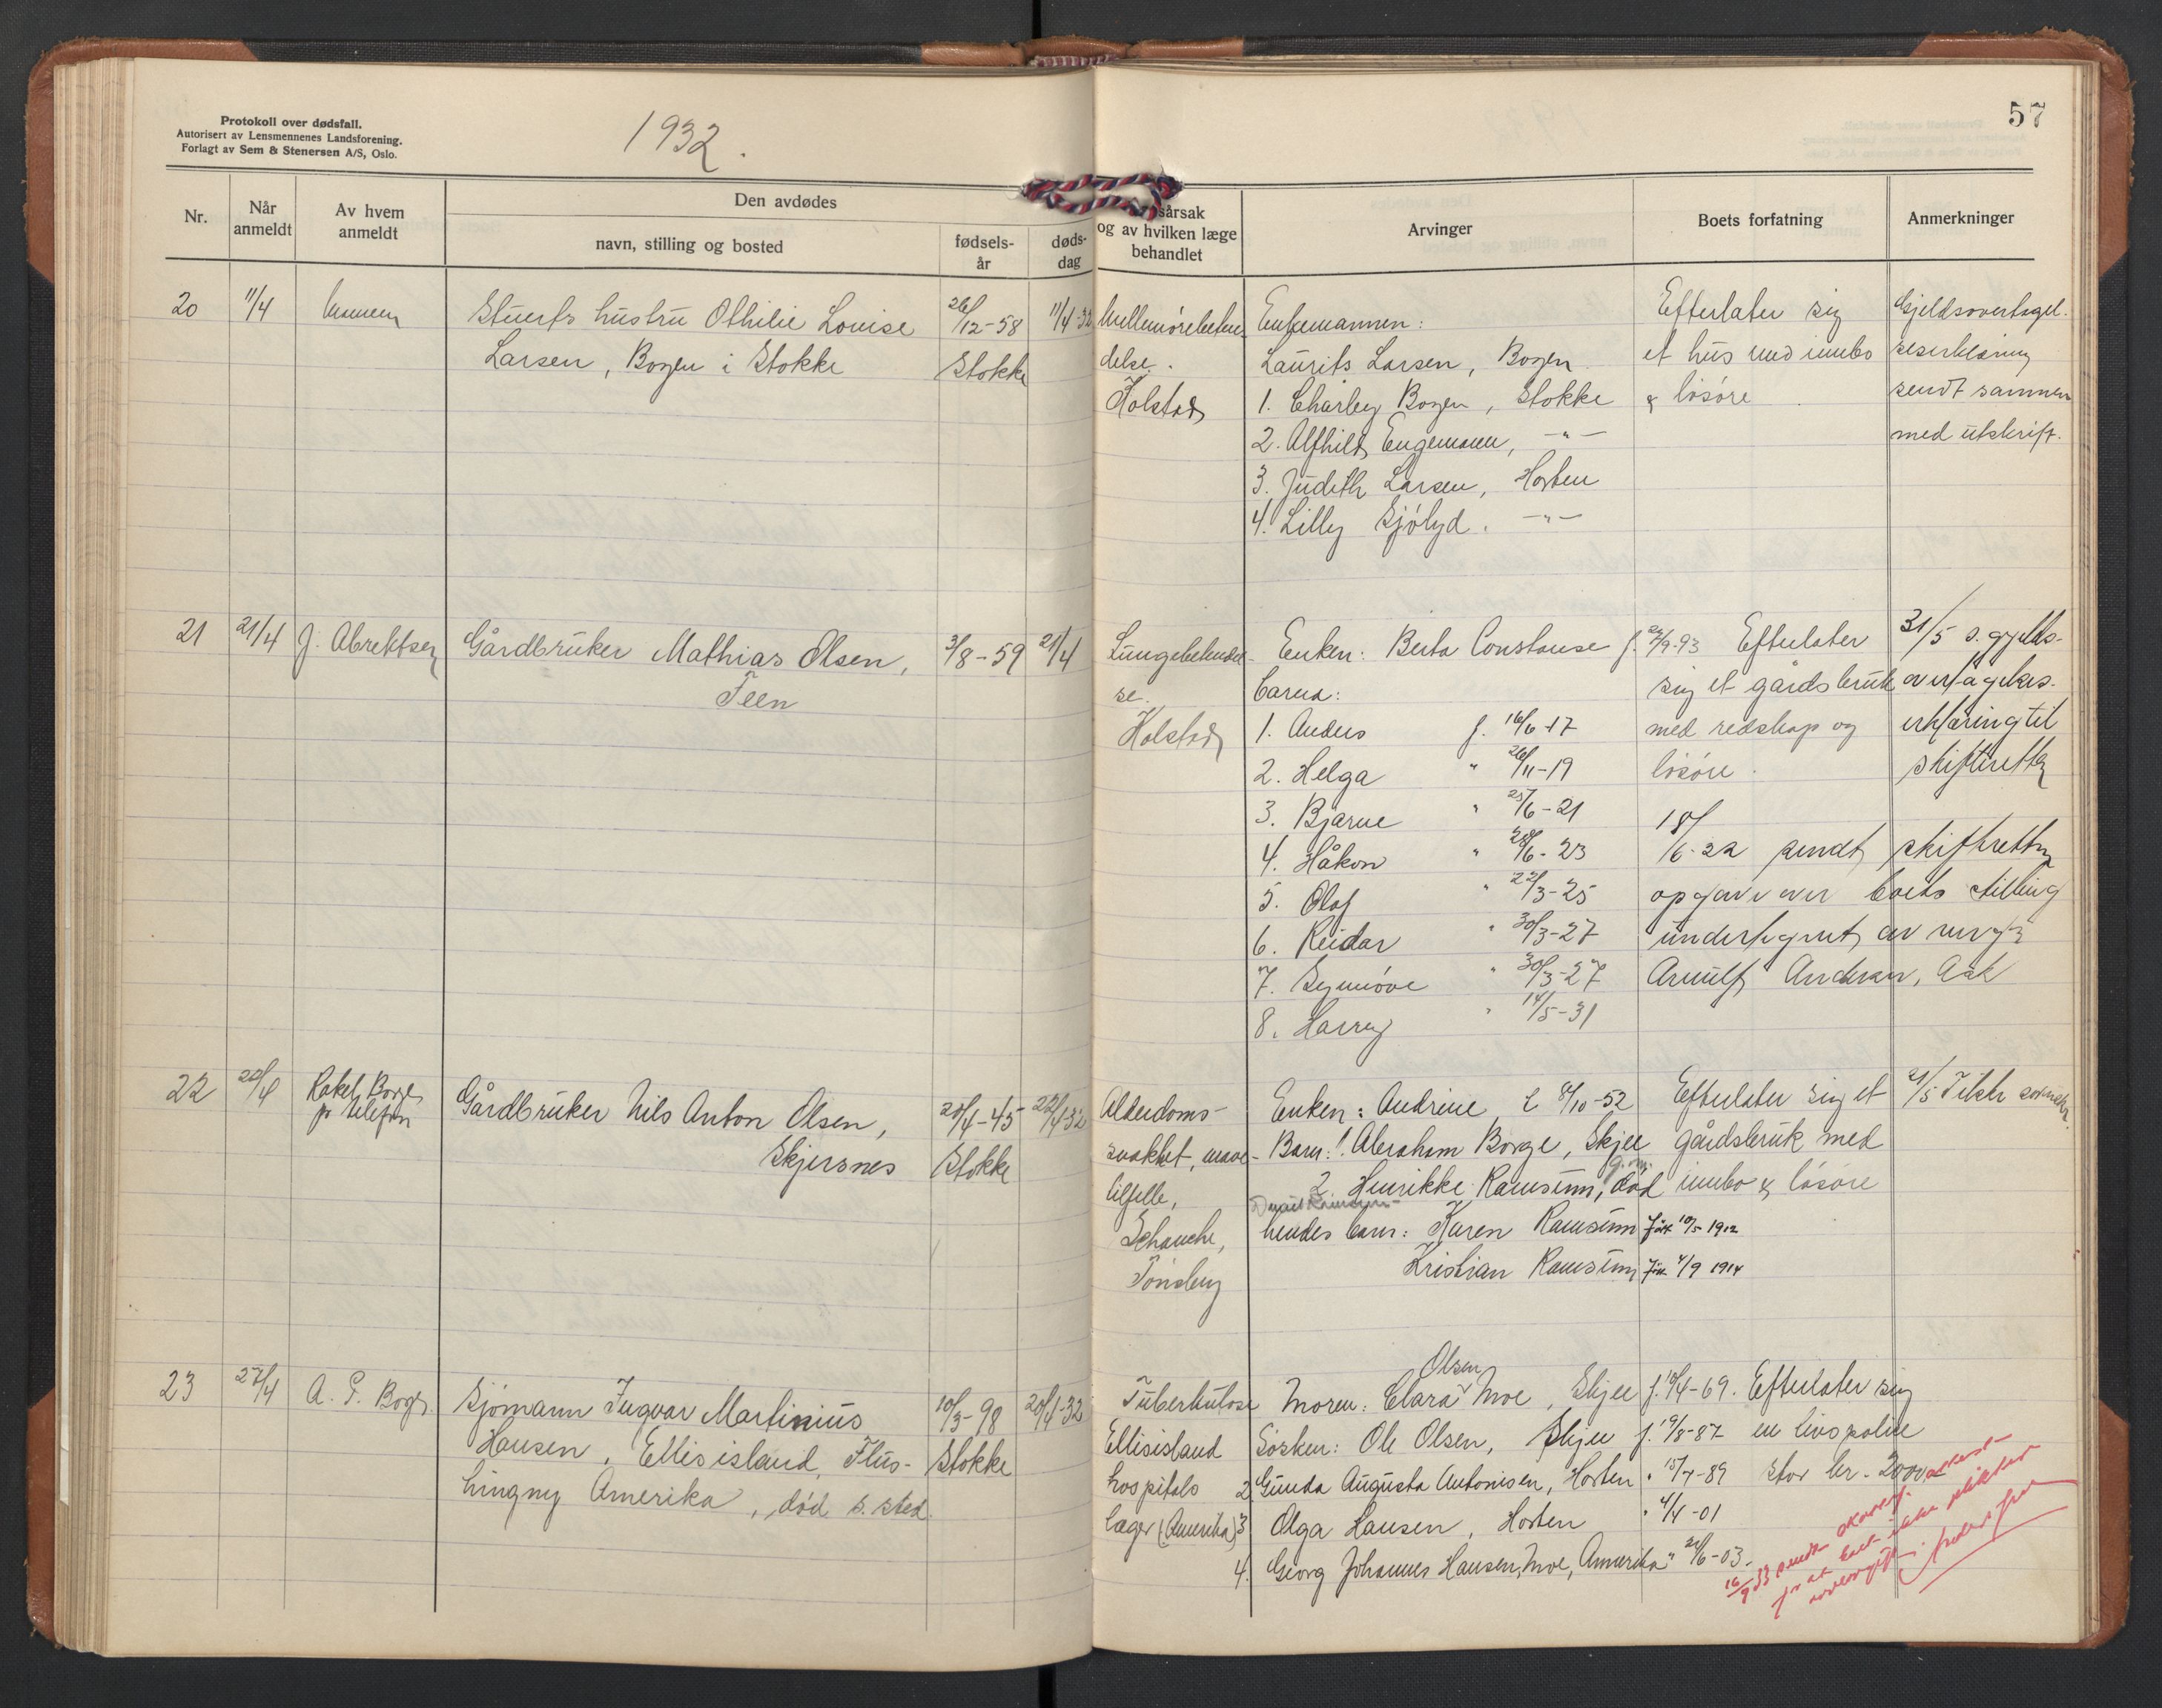 Protokoll over dødsfall.
Autorisert av Lensmennenes Landsforening.
Forlagt av Sem & Stenersen A/S, Oslo.
1932.
57
Nr.
Når anmeldt
Av hvem anmeldt
Den avdødes
navn, stilling og bosted
fødsels-år
døds-dag
sårsak og av hvilken læge behandlet
Arvinger
Boets forfatning
Anmerkninger
20 11/4
Stuerts hustru Othilie Louise
Larsen, Bogen i Stokke
26/12-58
Stokke
11/4-32
delse.
Holstad
Enkemannen:
Laurits Larsen, Bogen
1. Charley Bogen, Stokke
2. Alfhild Engemann, -"-
3. Judith Larsen, Horten
4. Lilly Sjölyd. -"-
Efterlater sig
et hus med innbo
& lösöre
Gjeldsovertagel-
seserklæring
sendt sammen
med utskrift.
21 21/4 J. Abrektsen
Gårdbruker Mathias Olsen,
Feen
3/8-59 21/4
Lungebetendel-
se.
Holstad
Enken: Berta Constanse f. 24/9-93
barna:
1. Anders f. 16/6-17
2. Helga " 26/11-19
3. Bjarne " 25/6-21
4. Håkon " 28/6-23
5. Olaf " 22/3-25
6. Reidar " 30/3-27
7. Synnöve " 30/3-27
8. Harry " 14/5-31
Efterlater
sig et gårdsbruk
med redskap og
lösöre.
31/5 s. gjelds-
overtagelses-
erklæring til
skifteretten
18/6-32 sendt skifteretten
opgave over boets stilling
undertegnet av verge
Arnulf Andersen, Ask
22 22/4 Rakel Borge
pr telefon
Gårdbruker Nils Anton Olsen,
Skjersnes
28/4-45
Stokke
22/4 32
Alderdoms-
svakhet, mave-
tilfelle,
Schanche,
Tönsberg
Enken: Andrine f. 8/10-52
Barn: 1. Abraham Borge, Skjee
2 Henrikke Ramsum, död
hendes barn: Karen Ramsum född 10/5 1912
Kristian Ramsum född 4/9 1914
Efterlater sig et
gårdsbruk med
innbo & lösöre
21/5
23 27/4
Sjömann Ingvar Martinius
Hansen, Ellisisland, Flus-
hingny Amerika, död s. sted.
10/3-98
Stokke
20/4-32
Tuberkulose
Ellisisland
hospitals
læger (Amerika)
Olsen
Moren: Clara Moe, Skjee f. 10/4-69.
Sösken: Ole Olsen, Skjee f. 19/8-87
2 Gunda Augusta Antonisen, Horten " 15/7-89
3 Olga Hansen, Horten " 4/4-01
4. Georg Johannes Hansen, Moe, Amerika " 21/6-03.
Efterlater sig
en livspolise
stor kr. 2000
16/9 33 sendt
for at boet ikke